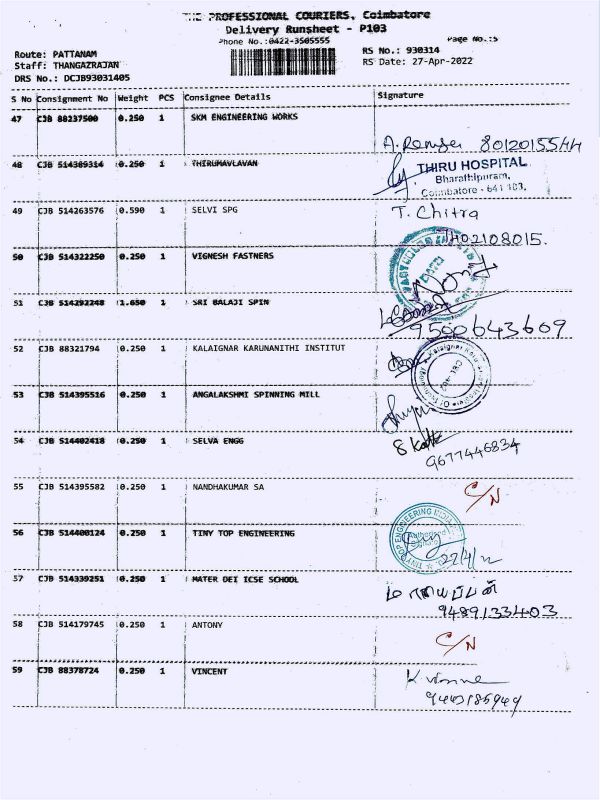 THE PROFESSIONAL COURIERS, Coimbatore
Delivery Runsheet - P103
Phone No.:0422-3505555
Page No.:5
Route: PATTANAM
RS No.: 930314
Staff: THANGAZRAJAN
RS Date: 27-Apr-2022
DRS No.: DCJB93031405
S No Consignment No Weight PCS Consignee Details Signature
47 CJB 88237500 0.250 1 SKM ENGINEERING WORKS
8012015544
48 CJB 514389314 0.250 1 THIRUMAVLAVAN
THIRU HOSPITAL
Bharathipuram,
Coimbatore - 641 103.
49 CJB 514263576 0.590 1 SELVI SPG T. Chitra
50 CJB 514322250 0.250 1 VIGNESH FASTNERS
51 CJB 514292248 1.650 1 SRI BALAJI SPIN
9500643609
52 CJB 88321794 0.250 1 KALAIGNAR KARUNANITHI INSTITUT
53 CJB 514395516 0.250 1 ANGALAKSHMI SPINNING MILL
54 CJB 514402418 0.250 1 SELVA ENGG
9677446834
55 CJB 514395582 0.250 1 NANDHAKUMAR SA C/N
56 CJB 514400124 0.250 1 TINY TOP ENGINEERING
57 CJB 514339251 0.250 1 MATER DEI ICSE SCHOOL
9489133403
58 CJB 514179745 0.250 1 ANTONY C/N
59 CJB 88378724 0.250 1 VINCENT